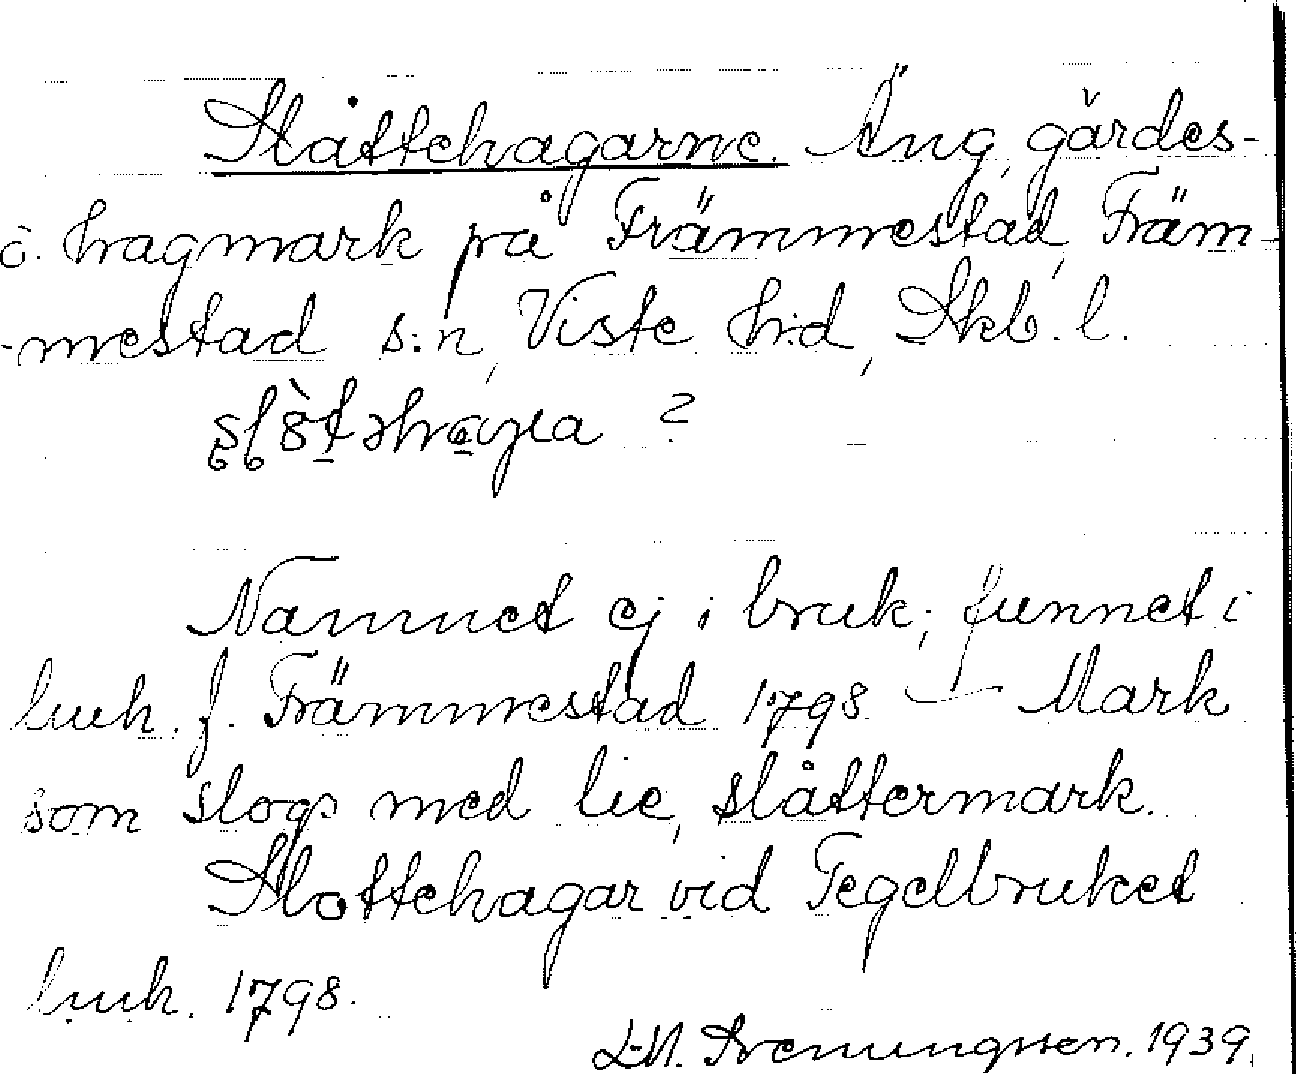 Slåttehagarne. Äng, gärdes-
o. hagmark på Främmestad, Främ-
-mestad s:n, Viste h:d, Skb. l.
?
Namnet ej i bruk; funnet i
luuh. f. Främmestad 1798 — Mark
som slogs med lie, slåttermark.
Slottehagar vid Tegelbruket
luuh. 1798.
Svenungsson. 1939.